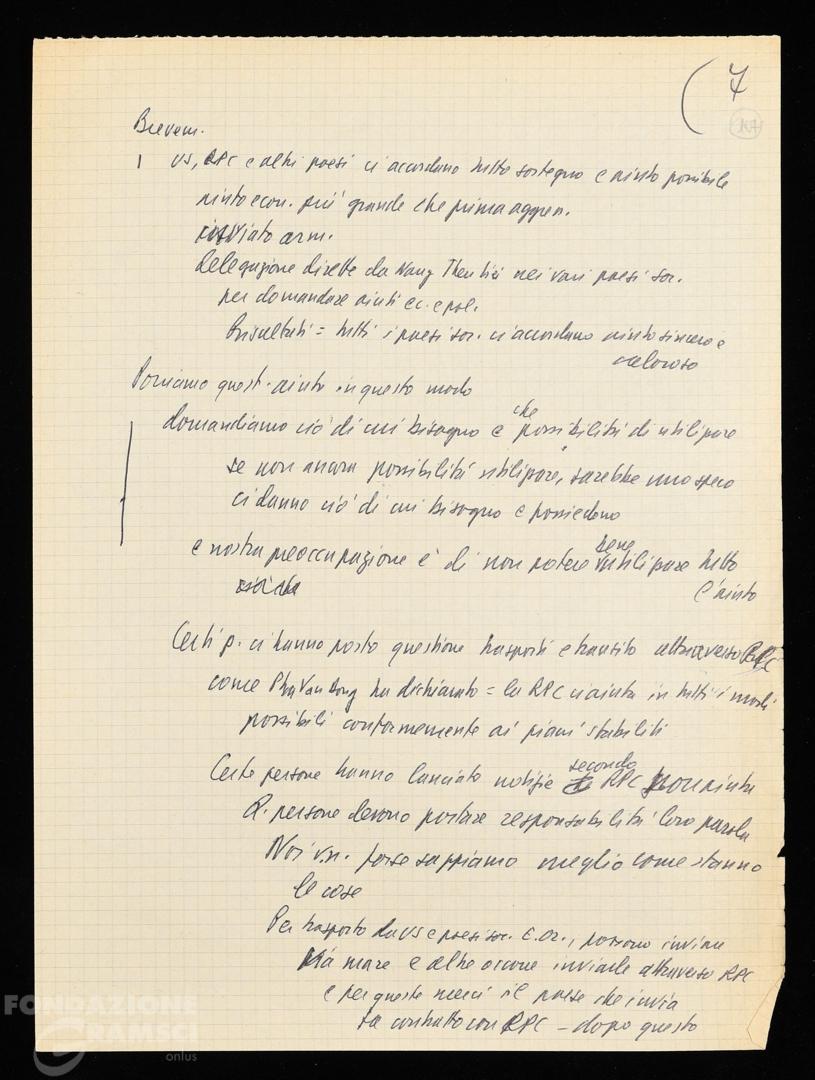 (7
147
Brevem.
1 US, RPC e altri paesi ci accordano tutto sostegno e aiuto possibile
aiuto econ. più grande che prima aggres.
inviato arm.
Delegazione dirette da Nang Then Lui nei vari paesi soc.
per domandare aiuti ec. e pol.
Risultati = tutti i paesi soc. ci accordano aiuto sincero e
caloroso
Poniamo quest. aiuto in questo modo
domandiamo ciò di cui bisogno e che possibilità di utilizzare
se non ancora possibilità utilizzare, sarebbe uno spreco
ci danno ciò di cui bisogno e possiedono
e nostra preoccupazione è di non potere bene utilizzare tutto
l'aiuto
Certi p. ci hanno posto questione trasporti e transito attraverso RPC
come Phan Van Dong ha dichiarato = la RPC ci aiuta in tutti i modi
possibili conformemente ai piani stabiliti
Certe persone hanno lanciato notizie secondo RPC non aiuta
Q. persone devono portare responsabilità loro parola
Noi v.n. forse sappiamo meglio come stanno
le cose
Per trasporto da US e paesi soc. E. or., possono inviare
via mare e altre occorre inviarle attraverso RPC
e per queste merci il paese che invia
fa contratto con RPC – dopo questo
FONDAZIONE
GRAMSCI
onlus